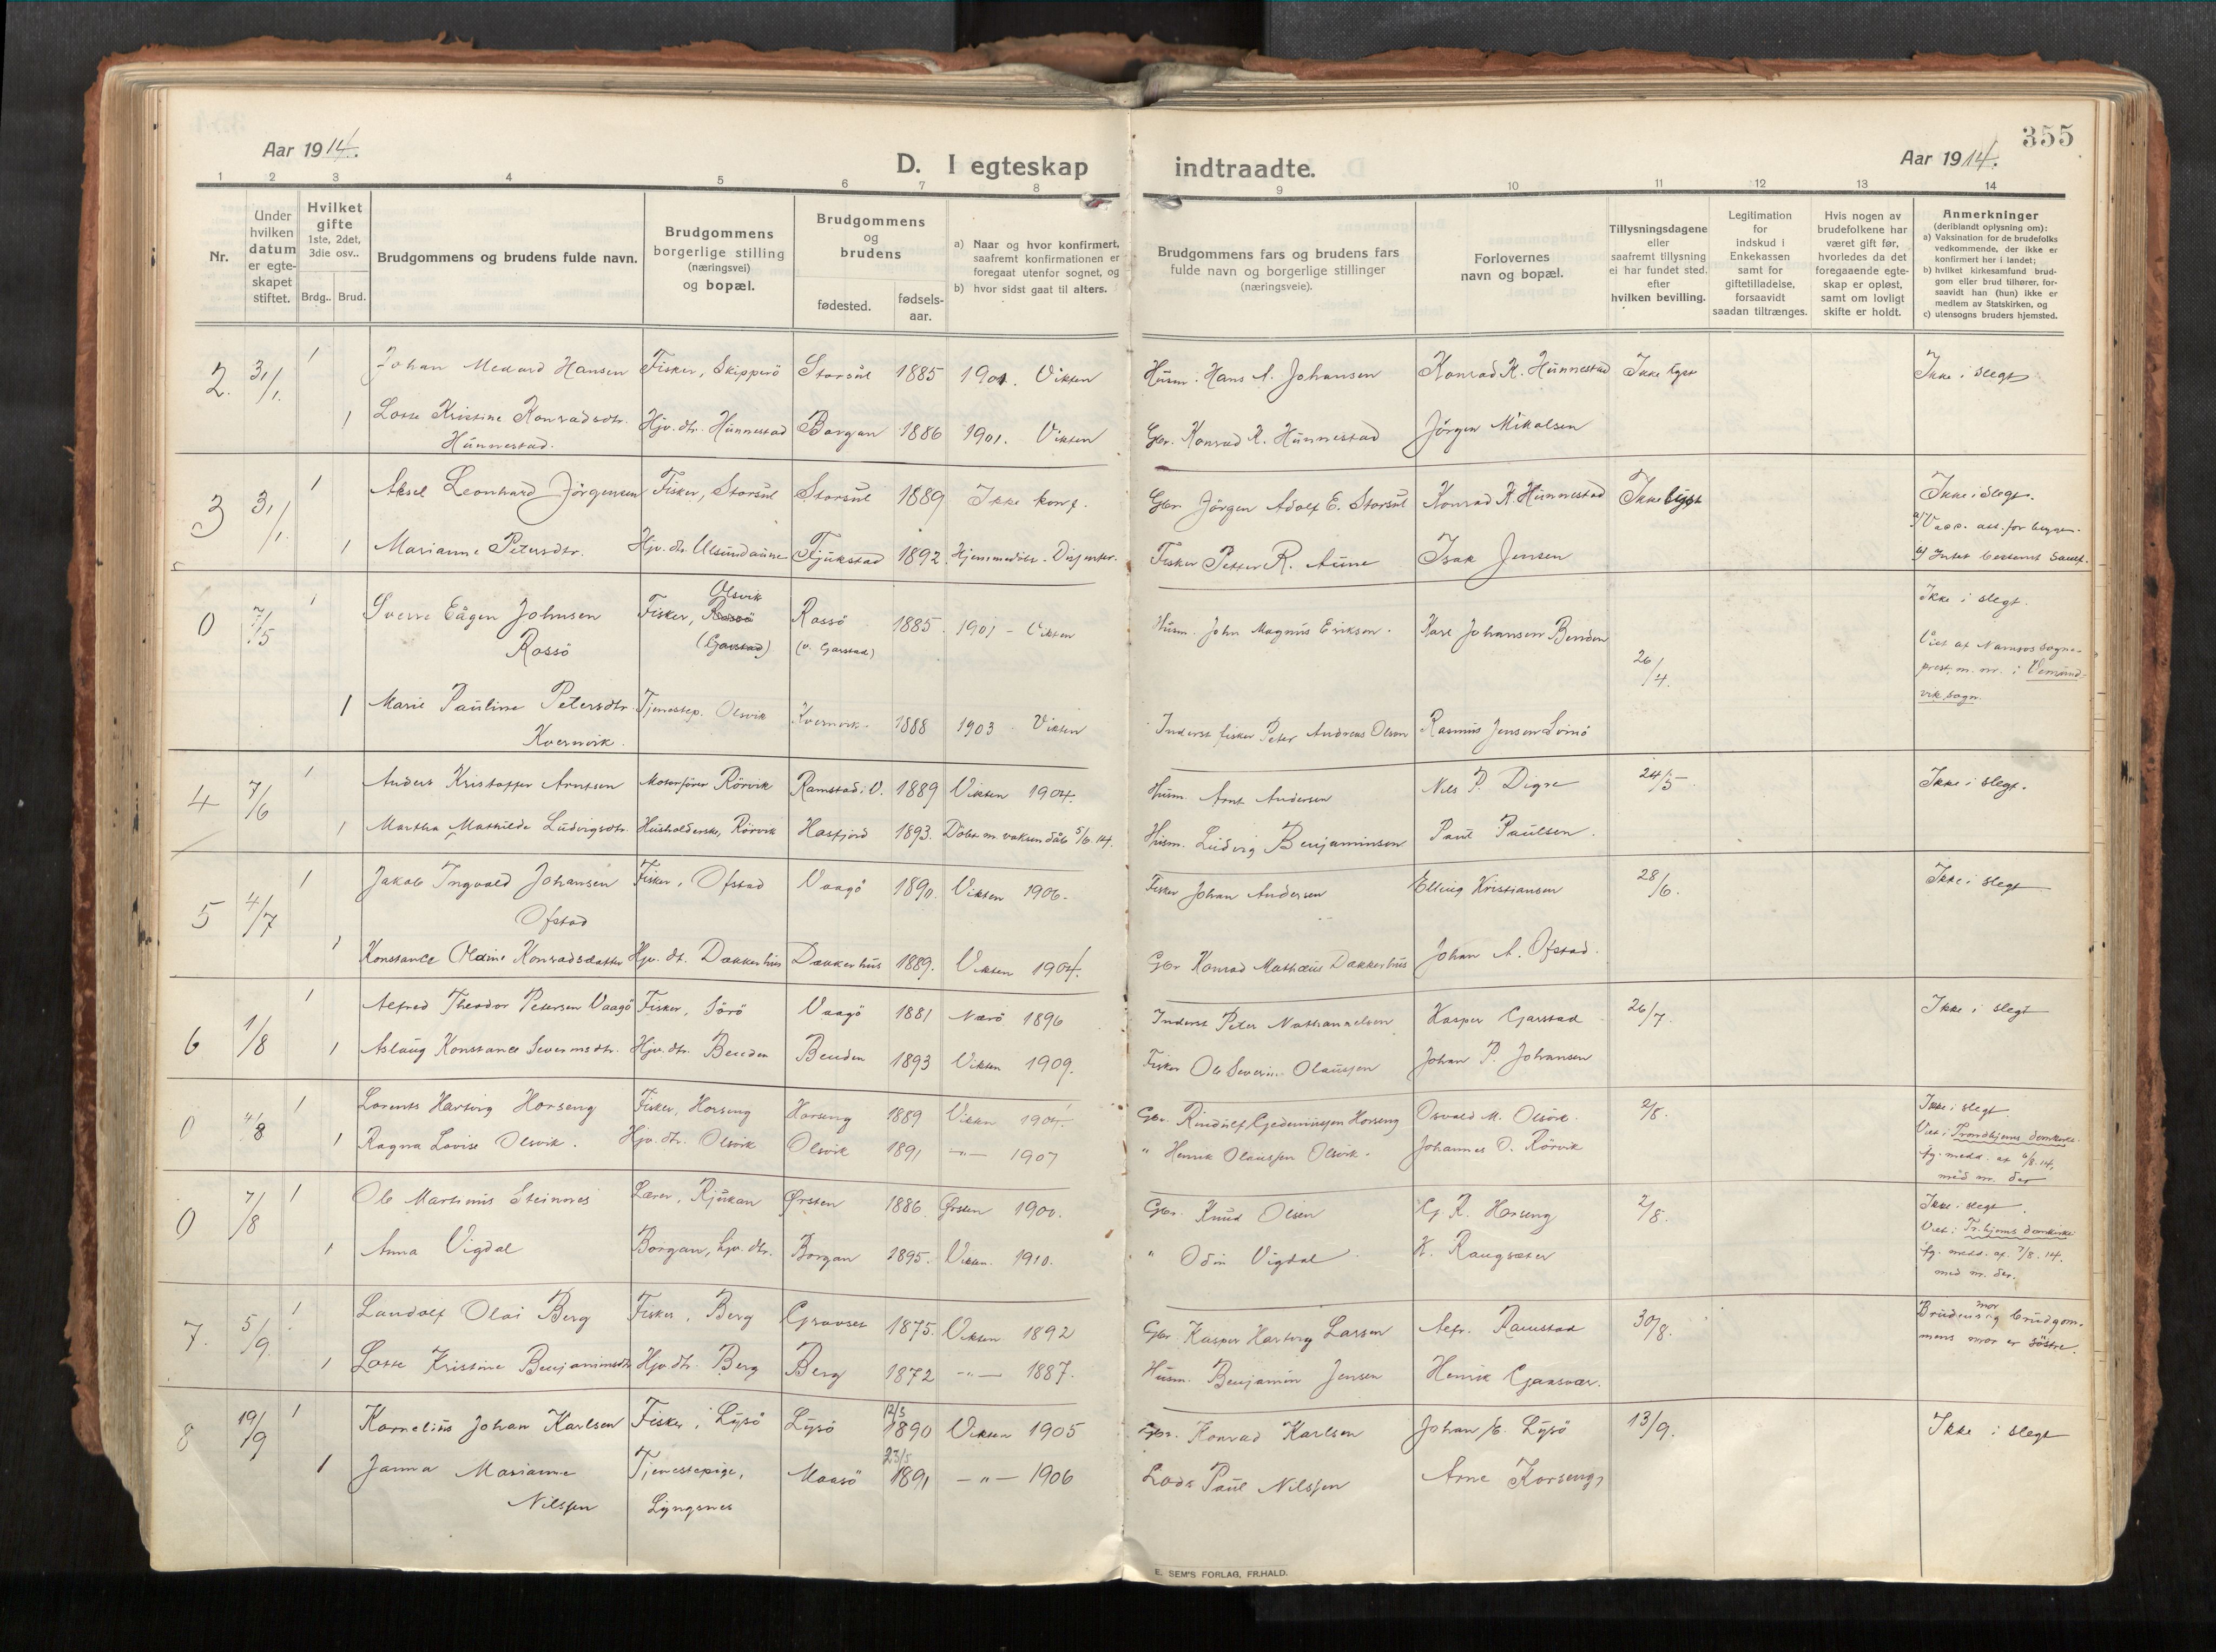 355
Aar 1914.
Aar 1914.
D. I egteskap indtraadte.
1 2 3 4 5 6 7 8 9 10 11 12 13 14
Nr.
Under hvilken datum er egte-skapet stiftet.
Hvilket gifte 1ste, 2det, 3die osv..
Brdg.. Brud.
Brudgommens og brudens fulde navn.
Brudgommens borgerlige stilling (næringsvei) og bopæl.
Brudgommens og brudens
fødested.
fødsels-aar.
a) Naar og hvor konfirmert, saafremt konfirmationen er foregaat utenfor sognet, og
b) hvor sidst gaat til alters.
Brudgommens fars og brudens fars fulde navn og borgerlige stillinger (næringsveie).
Forlovernes navn og bopæl.
Tillysningsdagene eller saafremt tillysning ei har fundet sted. efter hvilken bevilling.
Legitimation for indskud i Enkekassen samt for giftetilladelse, forsaavidt saadan tiltrænges.
Hvis nogen av brudefolkene har været gift før, hvorledes da det foregaaende egte-skap er opløst, samt om lovligt skifte er holdt.
Anmerkninger (deriblandt oplysning om):
a) Vaksination for de brudefolks vedkommende, der ikke er konfirmert her i landet;
b) hvilket kirkesamfund brud-gom eller brud tilhører, for-saavidt han (hun) ikke er medlem av Statskirken, og
c) utensogns bruders hjemsted.
2. 31/1. 1 Johan Medard Hansen Fisker, Skipperö Storsül 1885 1901. Vikten Husm. Hans A. Johansen Konrad K. Hünnestad Ikke lyst Ikke i slegt
1 Lotte Kristine Konradsdtr. Hünnestad. Hjv. dtr. Hünnestad Borgan 1886 1901. Vikten Gbr. Konrad K. Hünnestad Jörgen Mikalsen
3 31/1. 1 Aksel Leonhard Jörgensen Fisker, Storsül Storsül 1889 Ikke konf. Gbr. Jörgen Adolf E. Storsül Konrad K. Hünnestad Ikke lyst Ikke i slegt.
a) Vacc. att. for begge.
1 Marianne Petersdtr. Hjv. dtr. Ulsundaune Fjukstad 1892. Hjemmedöbt. Disjenter. Fisker Petter R. Aune Isak Jensen
b) Intet bestemt samf.
0 7/5 1 Sverre Eågen Johnsen Rossö Fisker, Rossö Olsvik (Garstad) Rossö (v. Garstad) 1885. 1901 - Vikten Husm. John Magnus Erikson. Karl Johansen Benden 26/4. Ikke i slegt.
Viet af Namsos sogne-prest, m. nr. i Vemund-vik sogn
1 Marie Pauline Petersdtr. Kvernvik. Tjenestep. Olsvik Kvernvik 1888 1903 Vikten Inderst fisker Peter Andreas Olsen Rasmus Jensen
4 7/6 1 Anders Kristoffer Arntsen Motorfører Rörvik Ramstad i V. 1889 Vikten 1904. Husm. Arnt Andersen Nils P. Digre 24/5 Ikke i slegt.
1 Martha Mathilde Ludvigsdtr. Husholderske, Rörvik Hasfjord 1893. Döbt m. voksen dåb 5/6.14. Husm. Ludvig Benjaminsen Paul Paulsen.
5 4/7 1 Jakob Ingvald Johansen Ofstad Fisker, Ofstad Vaagö 1890. Vikten 1906. Fisker Johan Andersen Elling Kristiansen 28/6. Ikke i slegt
1 Konstance Oldine Konradsdatter Hjv. dt. Dækkerhus Dækkerhus 1889. Vikten 1904. Gbr Konrad Mathæus Dækkerhus Johan A. Ofstad.
6 1/8 1 Alfred Theodor Petersen Vaagö Fisker, Sörö Vaagö 1881 Nærö 1896 Inderst Peter Nathanaelsen Kasper Garstad 26/7. Ikke i slegt
1 Aslaug Konstance Severinsdtr. Hjv. dtr. Benden Benden 1893 Vikten 1909. Fisker Ole Severin Olaussen Johan P. Johansen
0 4/8 1 Lorents Hartvig Horseng Fisker, Horseng Horseng 1889 Vikten 1904. Gbr. Rindulf Gedeminssen Horseng Osvald M. Olsvik. 2/8. Ikke i slegt.
Viet i Trondhjems domkirke. fg. medd. af 6/8.14, med nr. der
1 Ragna Lovise Olsvik. Hjv. dtr. Olsvik Olsvik 1891 -"- 1907 " Henrik Olaussen Olsvik. Johannes O. Rörvik
0 7/8 1 Ole Martinus Steinnes Lærer, Rjukan Ørsten 1886. Ørsten 1900. Gbr. Knud Olsen G. R. Horseng 2/8. Ikke i slegt.
Viet i Tr.hjems domkirke fg. medd. af 7/8.14. med nr. der.
1 Anna Vigdal Borgan, hjv. dtr. Borgan 1895. Vikten. 1910. " Odin Vigdal K. Raugsæter
7. 5/9 1 Landolf Olai Berg Fisker, Berg Gravset 1875. Vikten 1892 Gbr. Kasper Hartvig Larsen Alfr. Ramstad 30/8. Brudens mor og brudgom-mens mor er söstre.
1 Lotte Kristine Benjaminsdtr Hjv. dtr. Berg Berg 1872 -"- 1887. Husm. Benjamin Jensen Henrik Gjæsvær.
8 19/9 1 Kornelius Johan Karlsen Fisker, Lysö Lysö 12/3 1890 Vikten 1905 Gbr. Konrad Karlsen Johan E. Lysö 13/9. Ikke i slegt
1 Janna Marianne Nilssen Tjenestepige, Lyngsnes Maasö 23/5 1891 -"- 1906 Lods Paul Nilssen Arne Horseng
E. SEM'S FORLAG, FR.HALD.